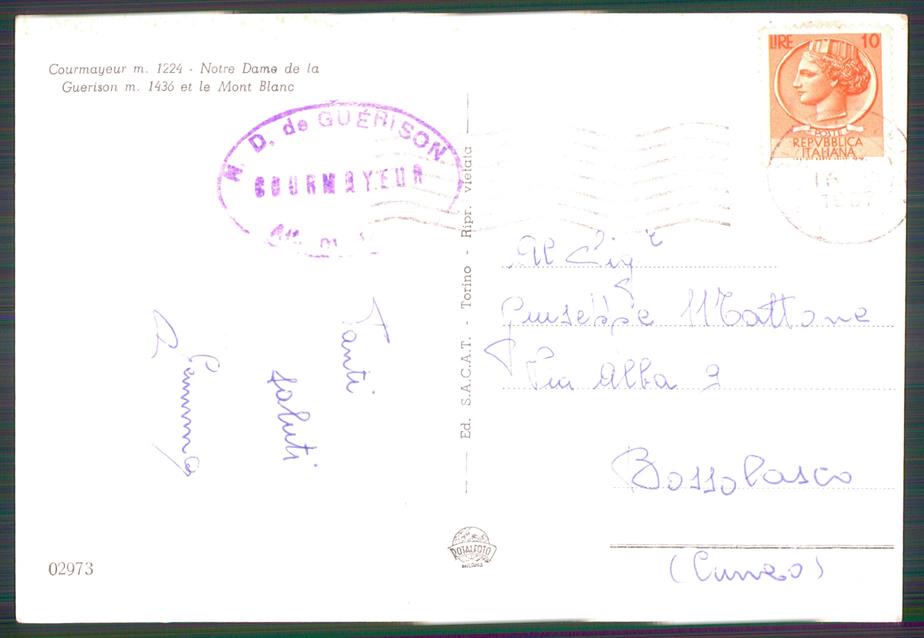 Courmayeur m. 1224 - Notre Dame de la
Guerison m. 1436 et le Mont Blanc
N. D. de GUÉRISON
COURMAYEUR
LIRE 10
POSTE
REPVBBLICA
ITALIANA
Tanti
saluti
Ed. S.A.C.A.T. - Torino - Ripr. vietata
Al Sig
Giuseppe Mattone
Via Alba 9
Bossolasco
(Cuneo)
ROTALFOTO
MILANO
02973